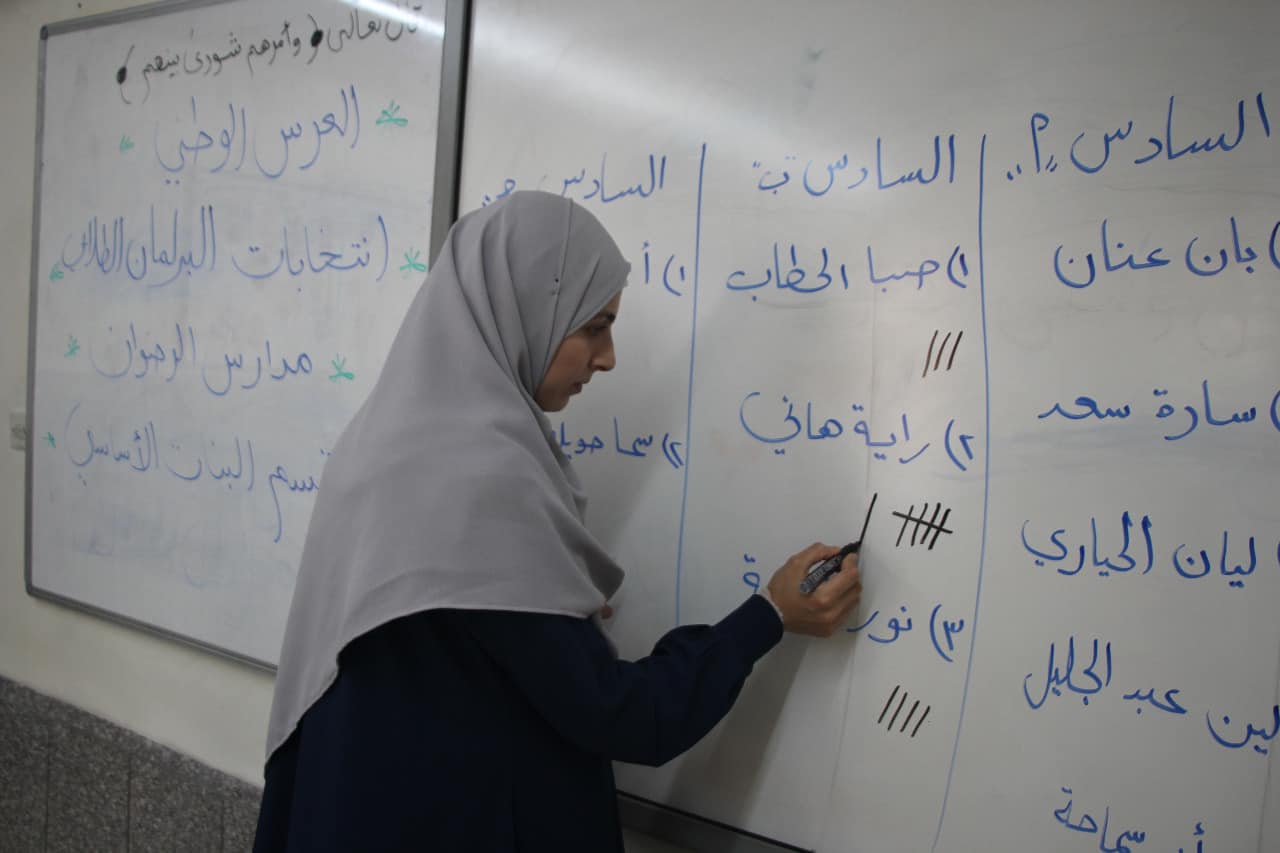 قال تعالى ( وأمرهم شورى بينهم )
* العرس الوطني *
* انتخابات البرلمان الطلابي *
* مدارس الرضوان *
قسم البنات الأساسي *
السادس أ ..
بان عنان
سارة سعد
ليان الحياري
لين عبد الجليل
سماحة
السادس ب
١) صبا الحطاب
٢) راية هاني
٣) نور
السادس ج
١) أ
٢) سما